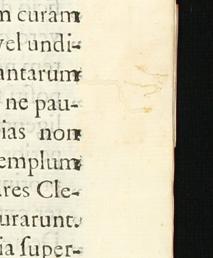 m curam
vel undi-
antarum
ne pau-
ias non
emplum
ares Cle-
urarunt.
ia ſuper-